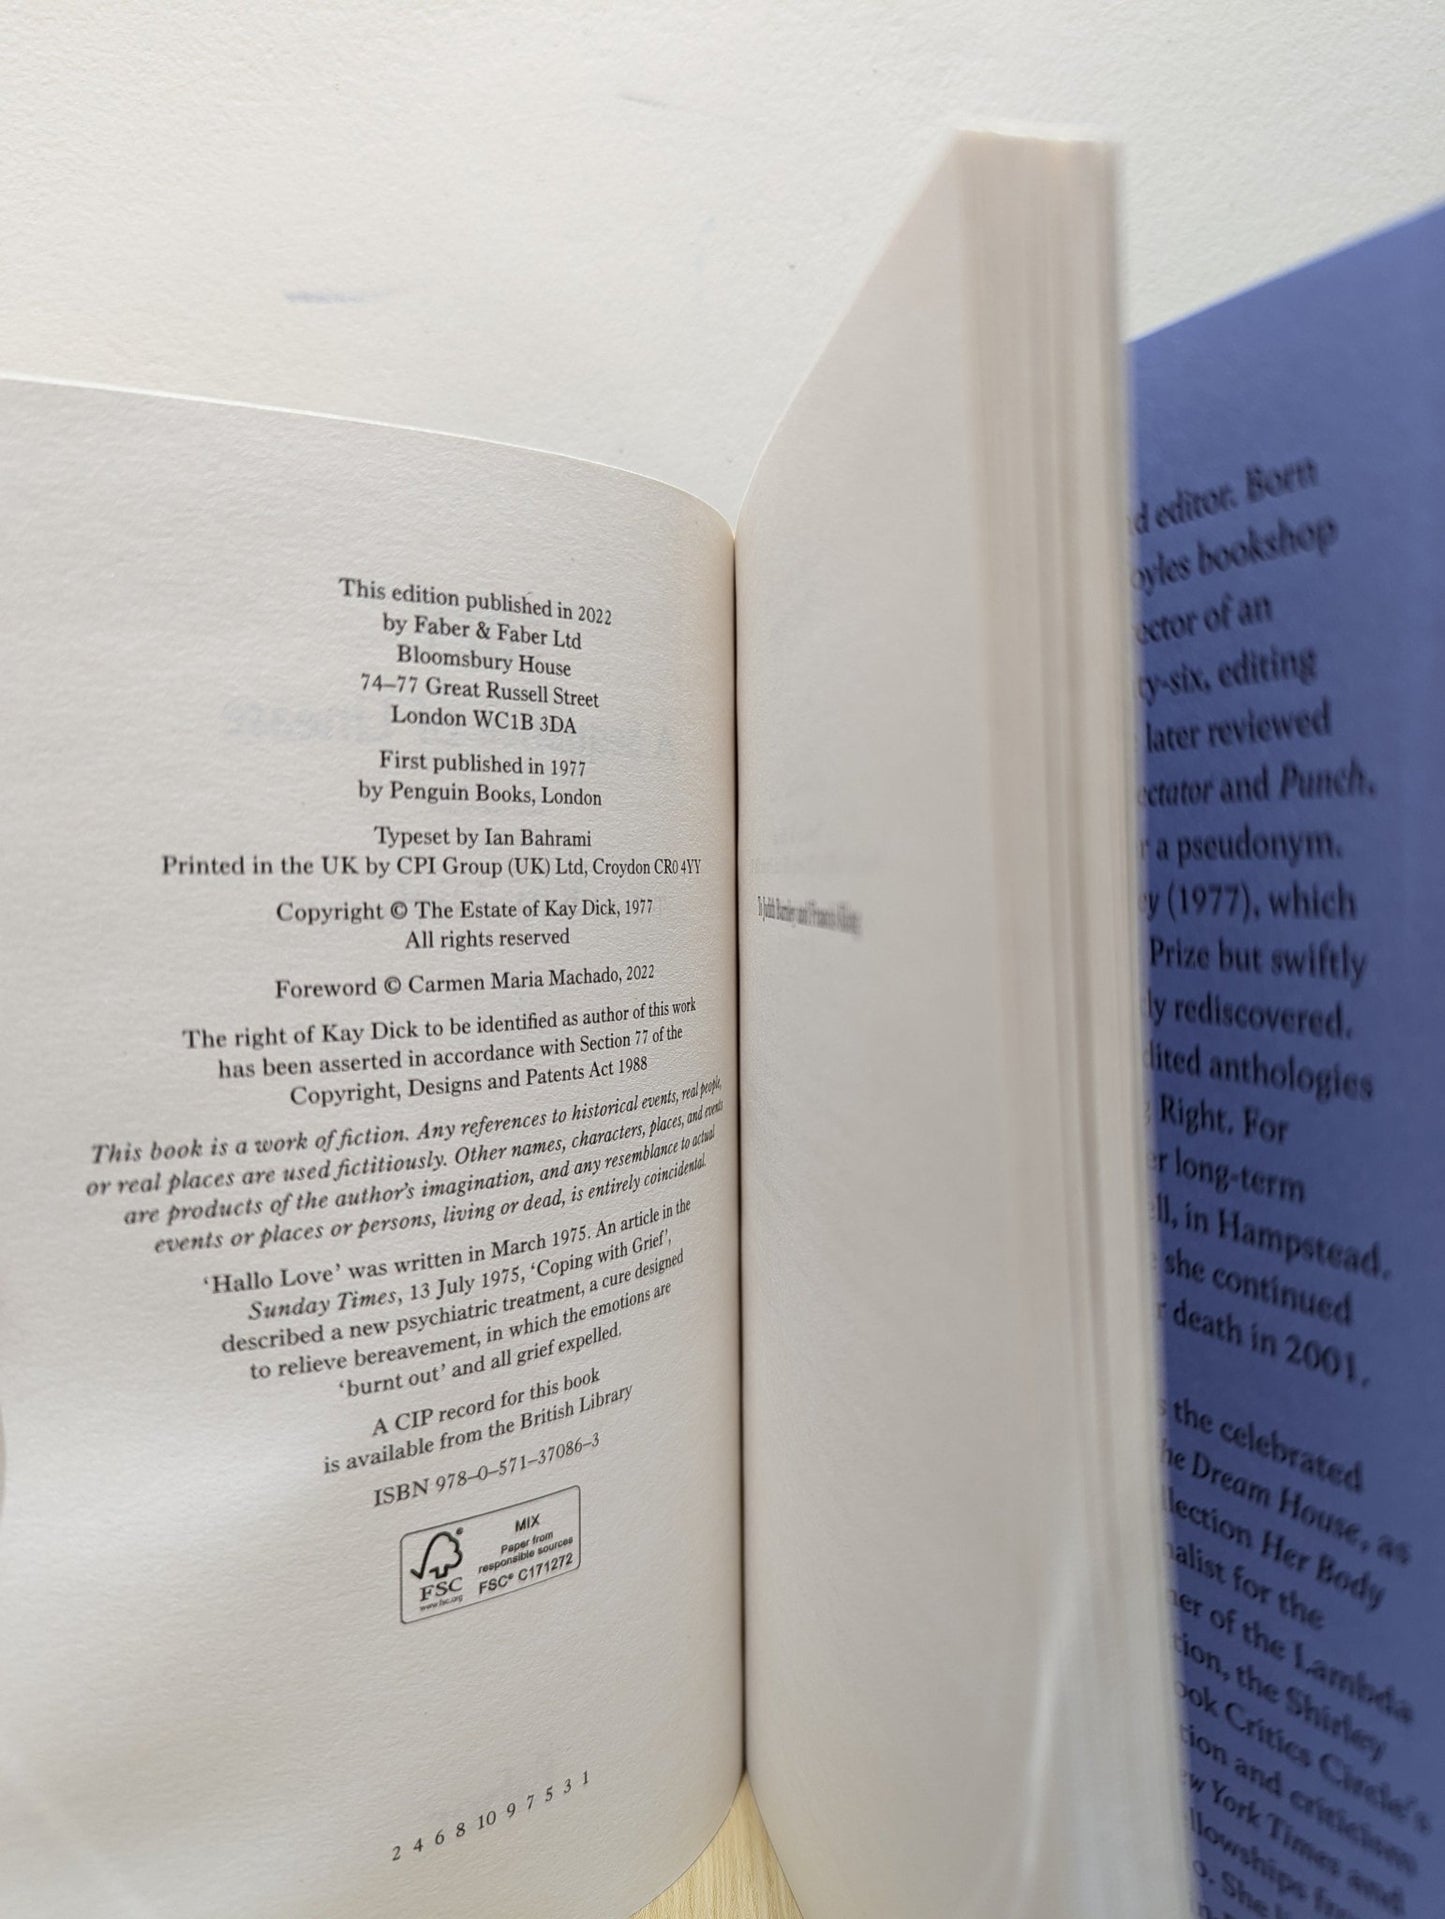 This edition published in 2022
by Faber & Faber Ltd
Bloomsbury House
74–77 Great Russell Street
London WC1B 3DA
First published in 1977
by Penguin Books, London
Typeset by Ian Bahrami
Printed in the UK by CPI Group (UK) Ltd, Croydon CR0 4YY
Copyright © The Estate of Kay Dick, 1977
All rights reserved
Foreword © Carmen Maria Machado, 2022
The right of Kay Dick to be identified as author of this work
has been asserted in accordance with Section 77 of the
Copyright, Designs and Patents Act 1988
This book is a work of fiction. Any references to historical events, real people,
or real places are used fictitiously. Other names, characters, places, and events
are products of the author's imagination, and any resemblance to actual
events or places or persons, living or dead, is entirely coincidental.
‘Hallo Love’ was written in March 1975. An article in the
Sunday Times, 13 July 1975, ‘Coping with Grief’,
described a new psychiatric treatment, a cure designed
to relieve bereavement, in which the emotions are
‘burnt out’ and all grief expelled.
A CIP record for this book
is available from the British Library
ISBN 978–0–571–37086–3
MIX
Paper from
responsible sources
FSC® C171272
FSC
www.fsc.org
2 4 6 8 10 9 7 5 3 1
editor. Born
bookshop
of an
editing
later reviewed
and Punch,
a pseudonym.
(1977), which
Prize but swiftly
rediscovered.
anthologies
Right. For
long-term
in Hampstead.
she continued
death in 2001.
the celebrated
Dream House, as
Her Body
for the
of the Lambda
the Shirley
Critics Circle's
and criticism
York Times and
She